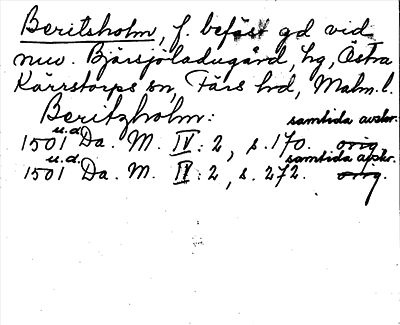 Beritsholm, f. befäst gd vid
nuv. Bjärsjöladugård, hg, Östra
Kärrstorps sn, Färs hd, Malm. l.
Beritzholm:
samtida avskr.
1501 u.d. Da. M. IV: 2, s. 170. orig
samtida avskr.
1501 u.d. Da. M. IV: 2, s. 272. orig.